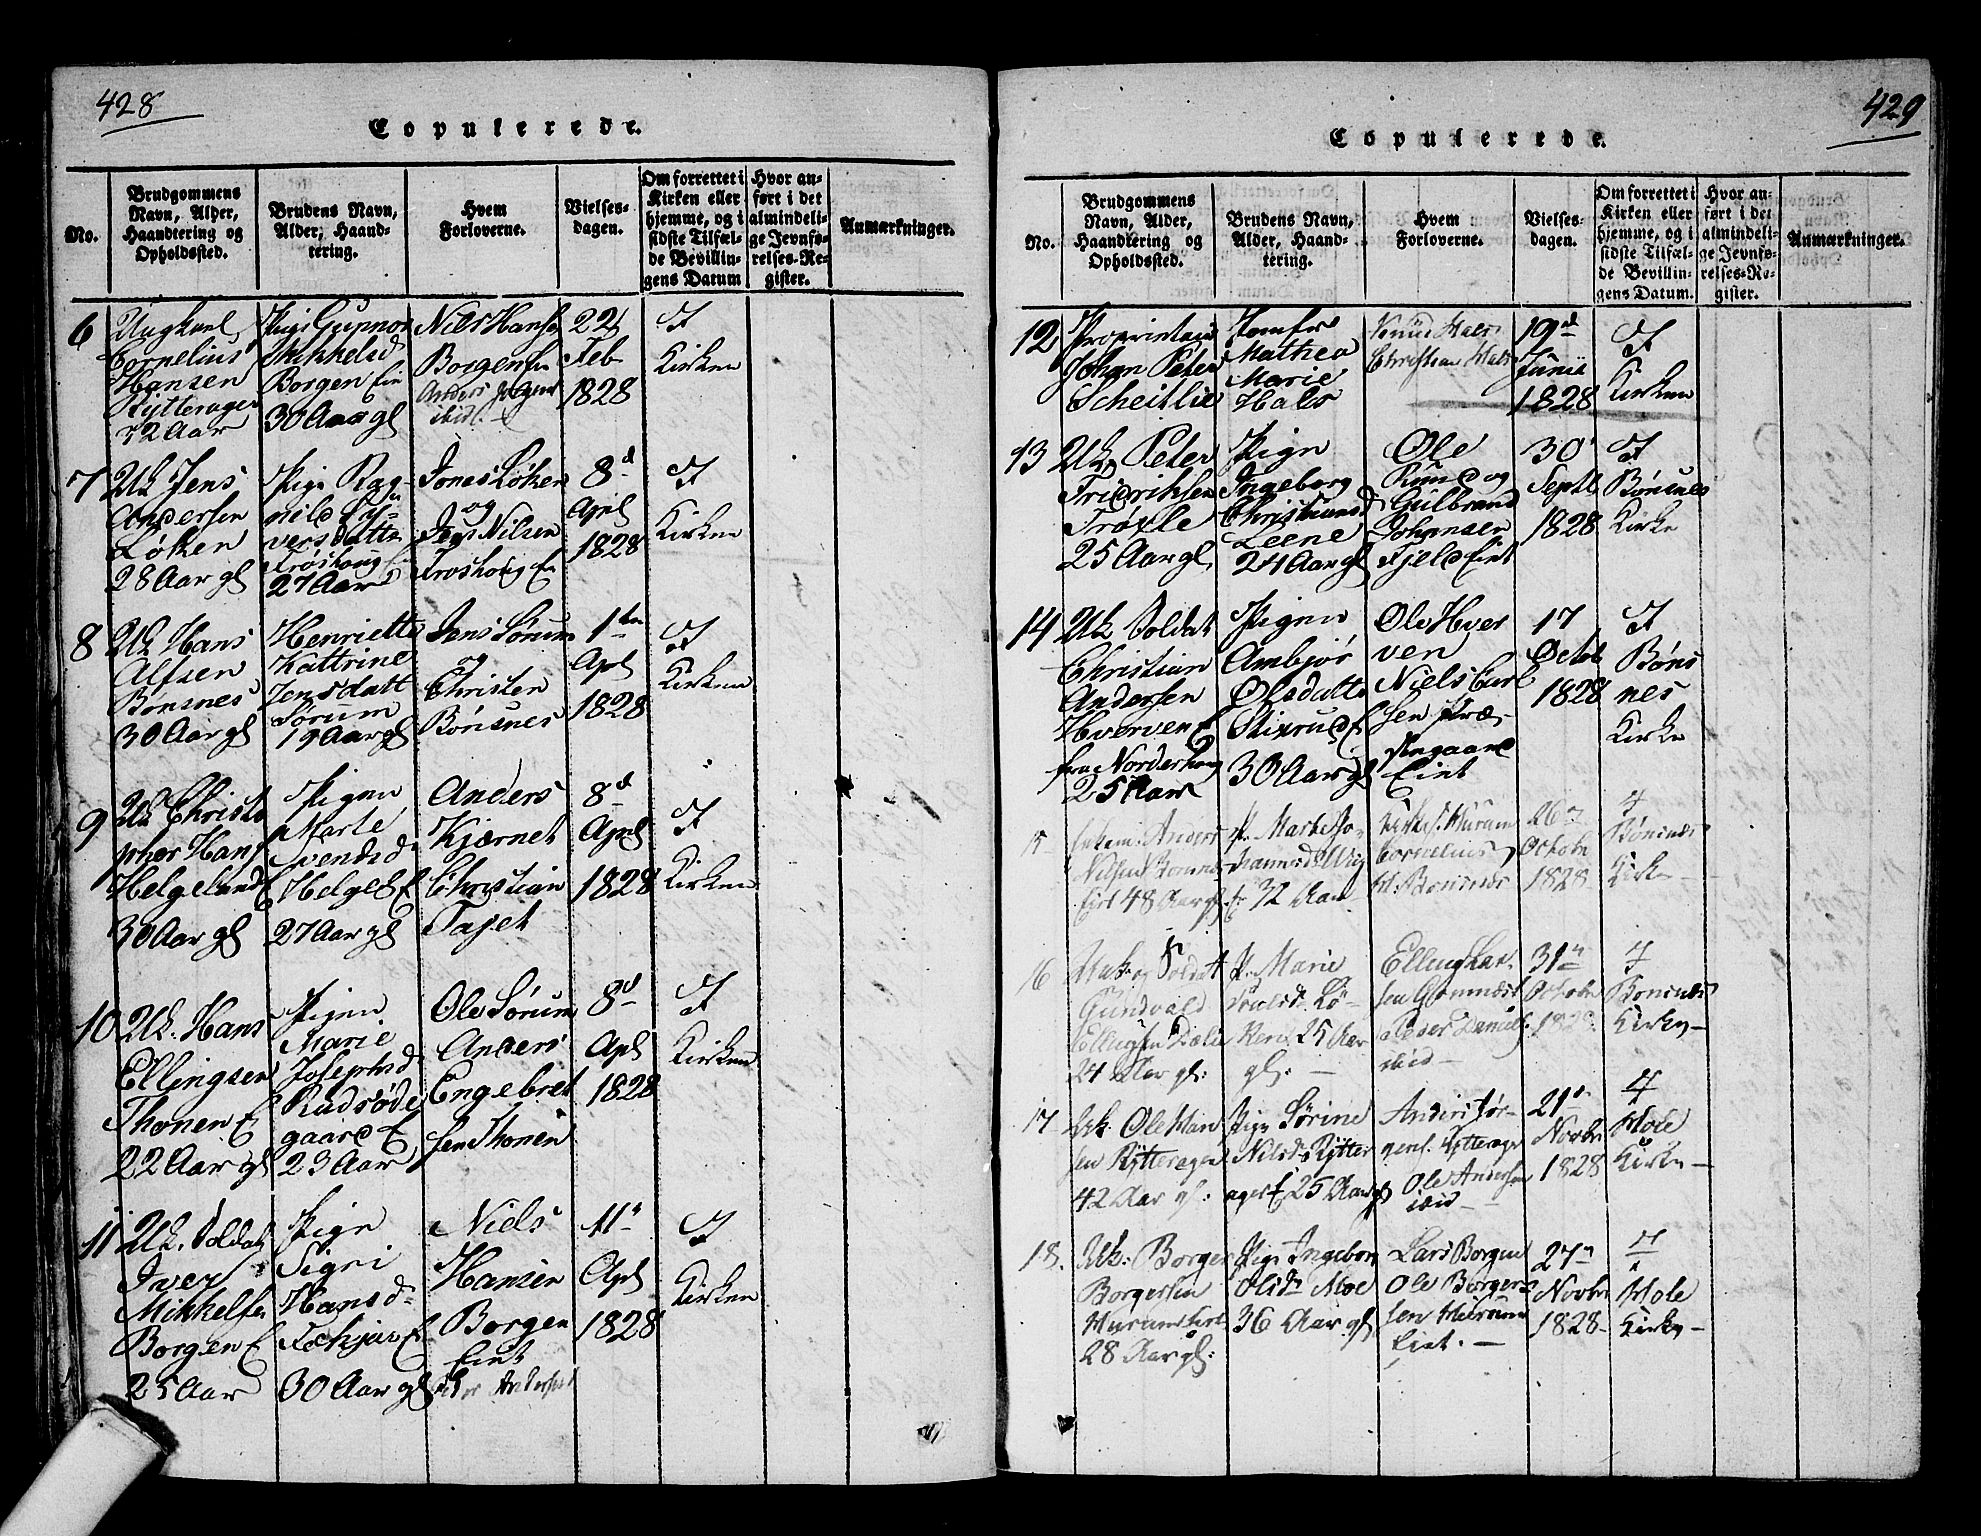 428
Copulerede.
No.
Brudgommens
Navn, Alder,
Haandtering og
Opholdssted.
Brudens Navn,
Alder, Haand-
tering.
Hvem
Forloverne.
Vielses-
dagen.
Om forrettet i
Kirken eller
hjemme, og i
sidste Tilfæl-
de Bevillin-
gens Datum
Hvor an-
ført i det
almindeli-
ge Jevnfø-
relses-Re-
gister.
Anmærkninger.
6
Ungkarl
Cornelius
Hansen
Rytterager
32 Aar
Pige
Mikkelsd
Borgen Eie
30 Aar gl
Niels Hansen
Borgen
Anders
ibid.
22
Feb
1828
I
Kirken
7
Uk Jens
Andersen
Løken
28 Aar gl
Pige Rag-
nild Sy-
versdatte
Frøshoug
27 Aar
Jones Løken
og
Jens Nilsen
Froshoug
8d
Aprl
1828
I
Kirken
8
Uk Hans
Alfsen
Bønsnes
30 Aar gl
Henriette
Kattrine
Jensdatt
Sørum
19 Aar gl
Jens Sørum
og
Christen
Bönsnes
1te
Apl
1828
I
Kirken
9
Uk Christo
pher Hans
Helgeland E
30 Aar gl
Pigen
Marte
Svendsd
Helgel E
27 Aar gl
Anders
Kjærnet
Christian
Tajet
8d
Aprl
1828
I
Kirken
10
Uk. Hans
Ellingsen
Thonen E
22 Aar gl
Pigen
Marie
Josephsd
Rudsøde
gaard E
23 Aar
Ole Sørum
Anders
Engebret
sen Thonen
8d
Apl
1828
I
Kirken
11
Uk. Soldat
Iver
Mikkelsen
Borgen E
25 Aar
Pige
Sigri
Hansd
30 Aar gl
Niels
Hansen
Borgen
Eiet
Andersen
11
Apl
1828
I
Kirken
429
Copulerede.
No.
Brudgommens
Navn, Alder,
Haandtering og
Opholdssted.
Brudens Navn,
Alder, Haand-
tering.
Hvem
Forloverne.
Vielses-
dagen.
Om forrettet i
Kirken eller
hjemme, og i
sidste Tilfæl-
de Bevillin-
gens Datum.
Hvor an-
ført i det
almindeli-
ge Jevnfø-
relses-Re-
gister.
Anmærkninger.
12
Proprietair
Johan Peter
Scheitlie
Jomfru
Mathea
Marie
Hals
Knud Hals
Christian Hals
19d
Junii
1828
I
Kirken
13
Uk Peter
Fridriksen
Trøxle
25 Aar gl
Pigen
Ingeborg
Christiansd
Leene
24 Aar gl
Ole
Rund og
Gulbrand
Johansen
Fjeld Eiet
30
Septl
1828
I
Bönsnes
Kirke
14
Uk Soldat
Christian
Andersen
Hverven E
fra Norderhoug
25 Aar
Pigen
Anbjør
Olsdatte
Stixrud E
30 Aar gl
Ole Hver
ven
Niels Carl
sen Præ-
stegaard
Eiet
17
Octob
1828
I
Bøns
nes
Kirke
15
Anders
Nilsen
Eiet 48 Aar gl.
P. Marte Jo-
hannesd Wig
E 32 Aar
Cornelius
Bønsnes
26
Octobr
1828
I
Bönsnæs
Kirke
16
Uk: og Soldat
Gundvald
Ellingsen Dælie
24 Aar gl:
P. Marie
Poulsd Lö-
Ken 25 Aar
gl. —
Elling Lar-
sen Gomnæs
Peder Daniels.
ibid —
31
Octobr
1828.
I
Bönsnæs
Kirke —
17
Uk: Ole Han
sen Rytteragen
42 Aar gl:
Pige Sörine
Nilsd Rytter
ager E 25 Aar gl
Anders Jör-
gens. Rytterager
Ole Andersen
ibid —
21
Novbr
1828
I
Hole
Kirke —
18.
Uk: Borger
Borgersen
28 Aar gl:
Pige Ingeborg
Olsd Moe
36 Aar gl
Lars Borgen
Ole Borger-
sen
Eiet. —
27
Novbr
1828
I
Hole
Kirke —